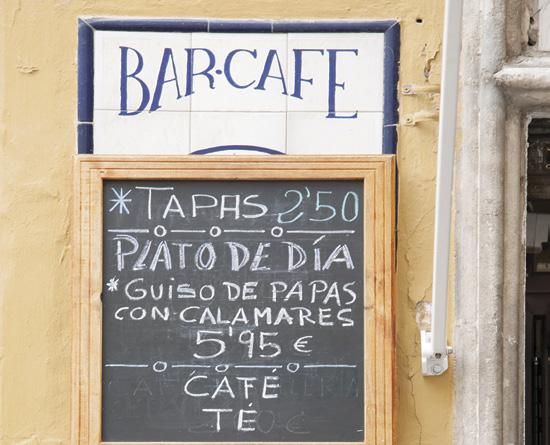 BAR·CAFE
* TAPAS 2'50
PLATO DE DÍA
* GUISO DE PAPAS
CON CALAMARES
5'95 €
CAFÉ
TÉ